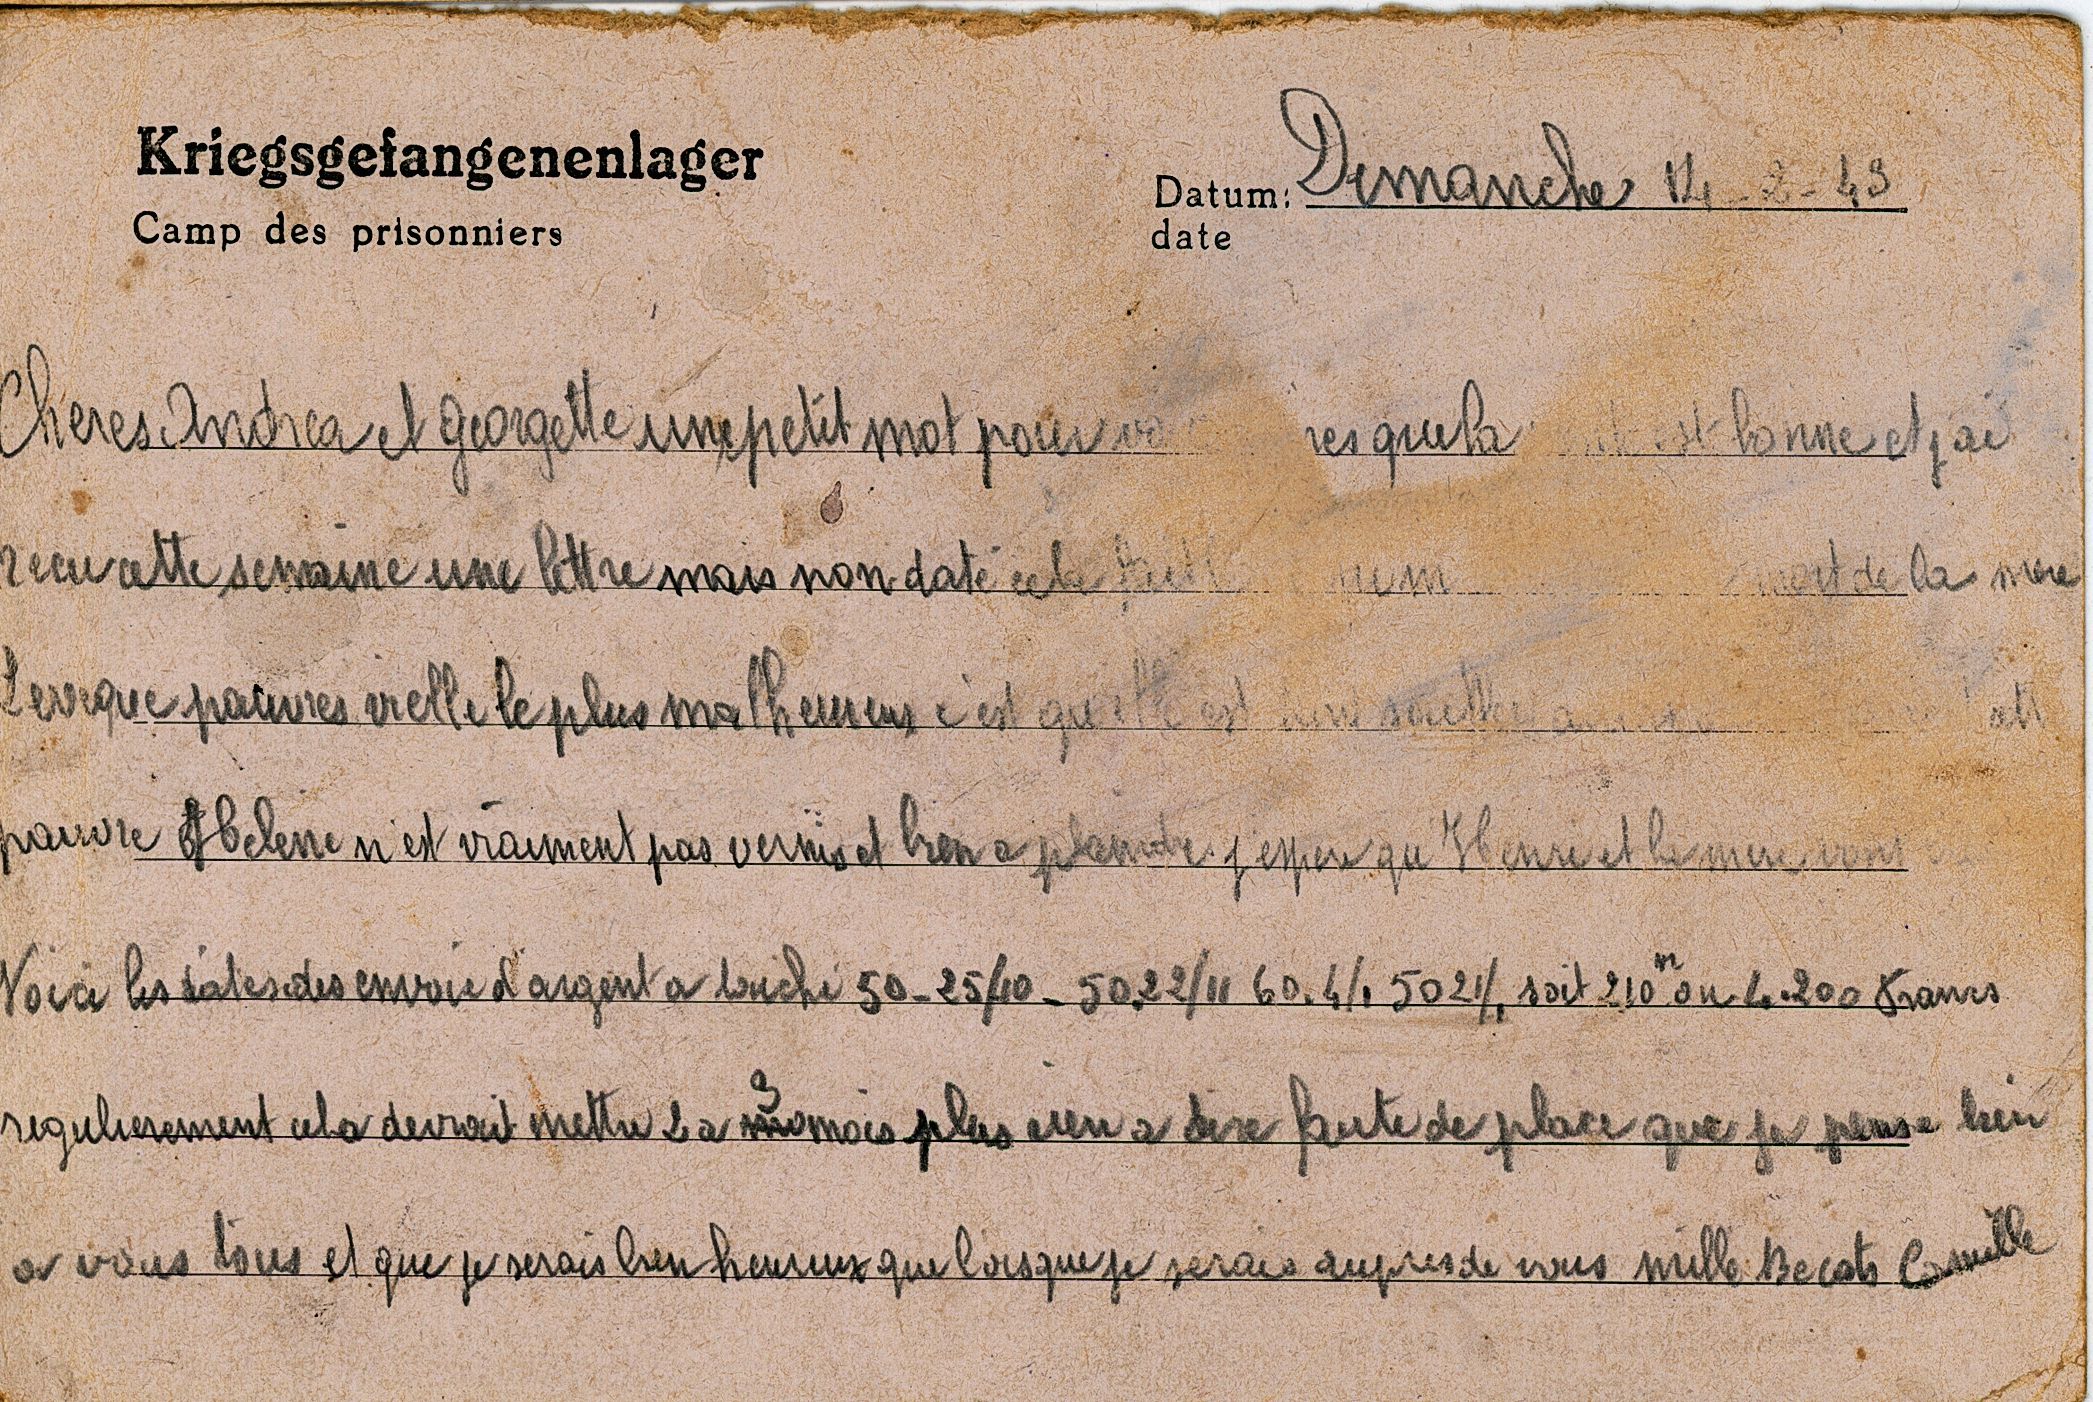 Kriegsgefangenenlager
Camp des prisonniers
Datum: Dimanche 14-2-43
date
Cheres Andrea et Georgette une petit mot pour que la est bonne et j'ai
recu cette semaine une lettre mais non daté mort de la mere
Leveque pauvres vielle le plus malheureux c'est qu'elle est
pauvre Helene n'est vraiment pas vernis et bien a plaindre j'espere qu'Henri et la mere vont
Voici les dates des envoie d'argent a touché 50-25/10-50.22/11 60.4/1 50 21/1 soit 210 m ou 4.200 Francs
regulierement cela devrait mettre 2 a 3 mois plus rien a dire faute de place que je pense bien
a vous tous et que je serais bien heureux que lorsque je serais aupres de vous mille Becots Camille